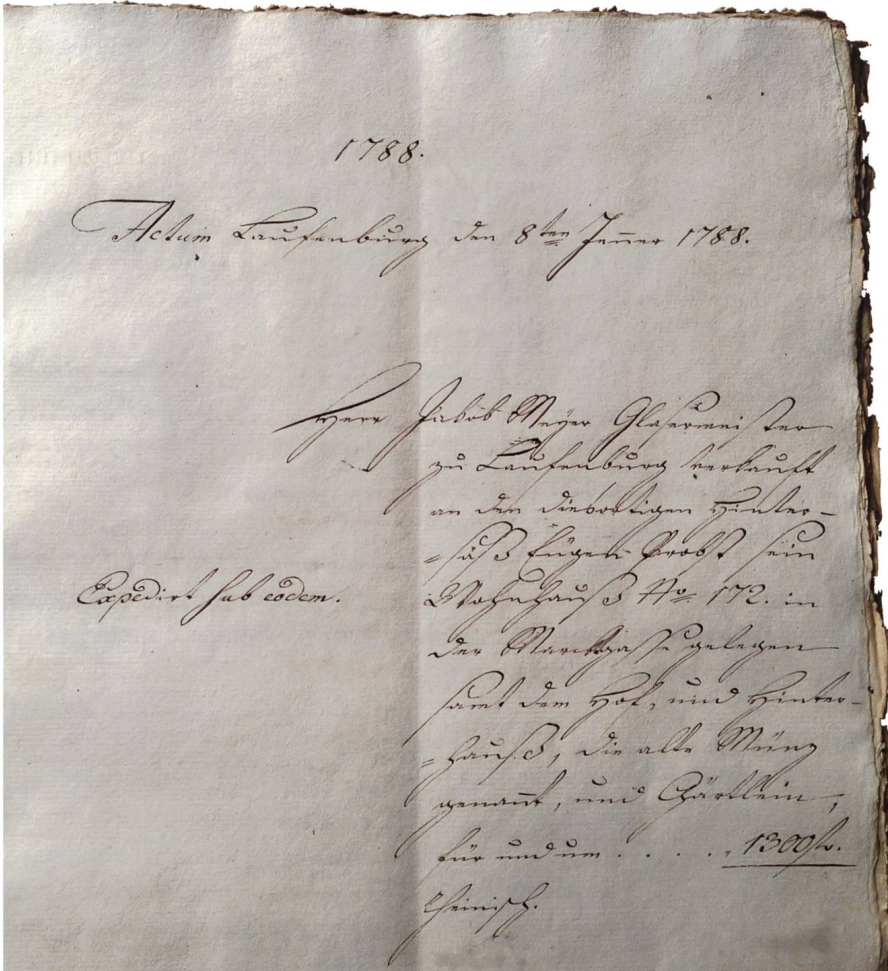 1788.
Actum Laufenburg den 8ten Jenner 1788.
Herr Jakob Meyer Glasermeister
zu Laufenburg verkauft
an den diesortigen Hinter-
=säß Eügen Probst sein
Expedirt sub eodem.
Wohnhauß No. 172. in
der Marckgasse gelegen
samt dem Hof, und Hinter-
=hauß, die alte Münz
genannt, und Gärtlein,
für und um . . . . . 1300 fl.
rheinisch.